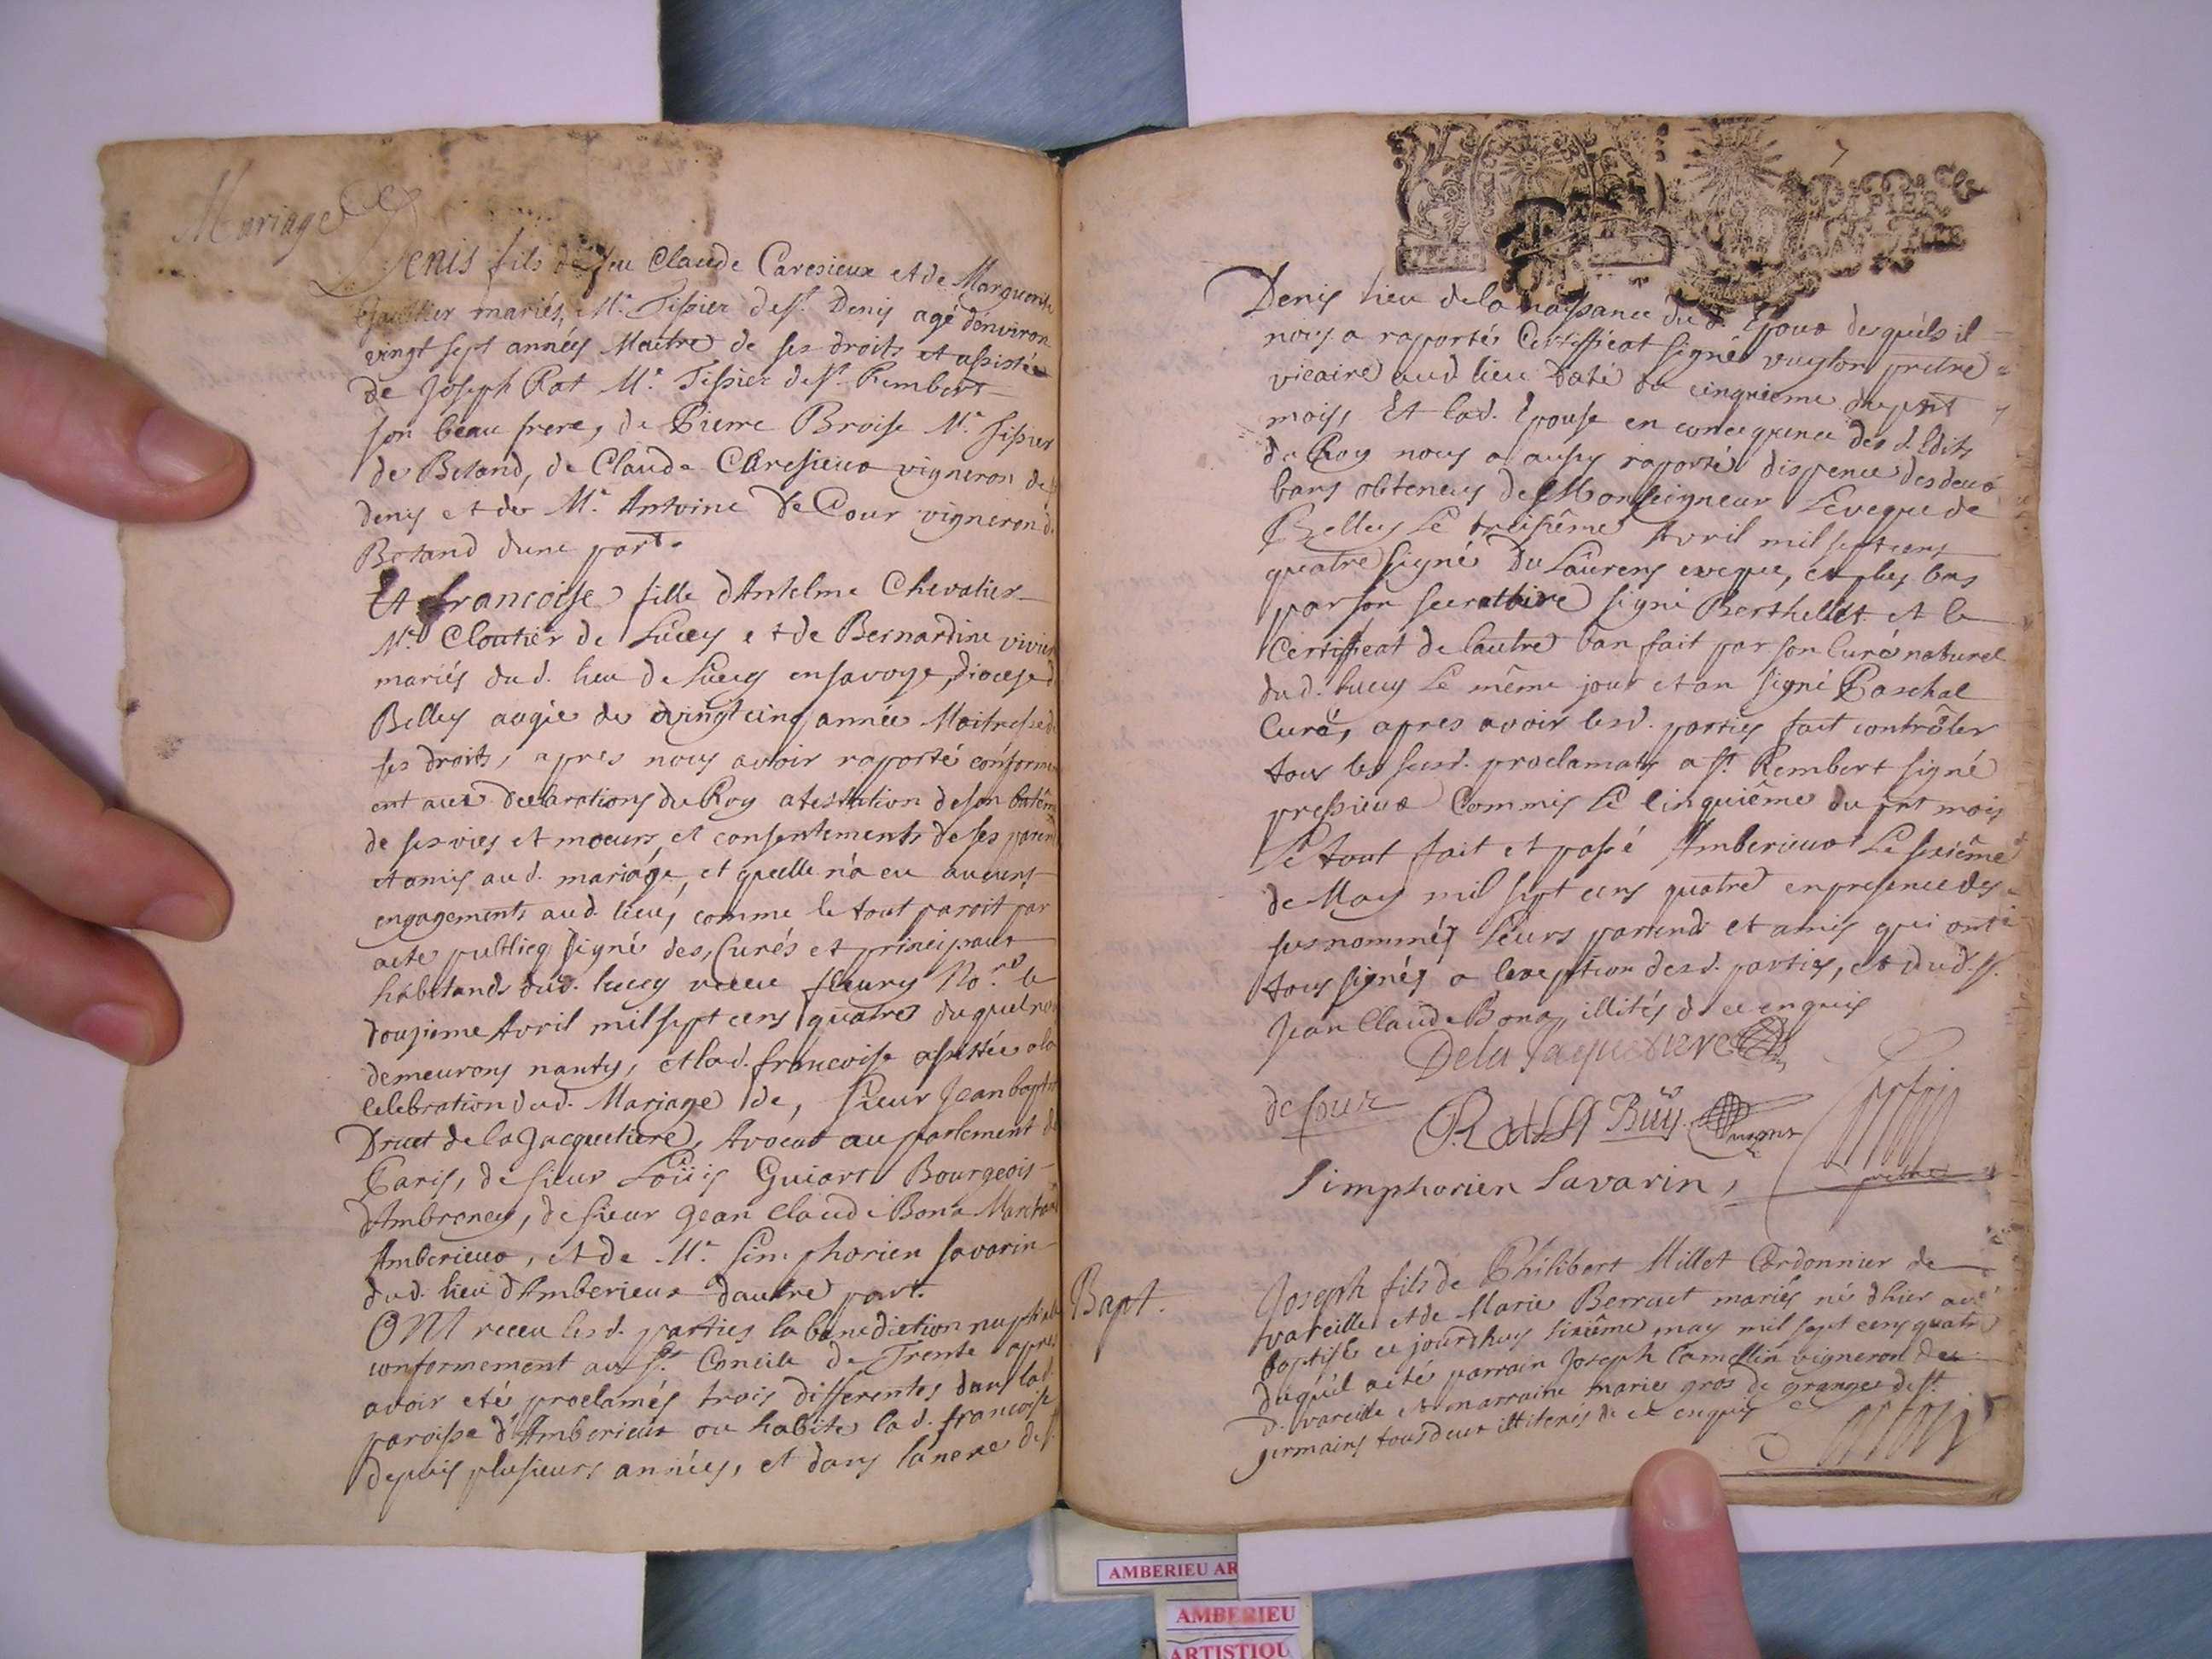 Mariage
Denis fils de feu Claude Caresieux et de Marguerite
Gaultier mariés, Mr. Tissier de St. Denis agé denviron
vingt sept années Maitre de ses droits et assistée
de Joseph Rat Mr. Tissier de St. Rembert
son beau frere, de Pierre Broise Mr. Tissier
de Betand, de Claude Caresieux vigneron de St
denis et de Mr. Antoine De Cour vigneron d.
Betand dune part.
Et francoise fille dAntelme Chevalier
Mr. Cloutier de Lucey et de Bernardine vivier
mariés dud. lieu de Lucey en savoye, diocese d
Belley augée de vingt cinq année Maitresse d
ses droits, apres nous avoir raporté conformem
ent aux declarations du Roy atestation de son batême
de ses vies et moeurs, et consentements de ses parents
et amis aud. mariage, et quelle n'a eu aucuns
engagements aud. lieu, comme le tout paroit par
acte publicq signé des Curés et principaux
habitands dud. lucey receu fleury Nore. le
douzieme Avril mil sept cens quatre duquel nous
demeurons nantys, et lad. francoise assistée a la
Celebration dud. Mariage de, Sieur Jean baptiste
Druet de la Jacquetiere, Avocat au parlement de
Paris, de sieur Loüis Guiart Bourgeois
dAmbronay, de sieur Jean Claude Bona Marchand
Amberieux, et de Mr. Simphorien savarin
dud. lieu dAmberieux dautre part.
ONt receu lesd. parties la benediction nuptiale
conformement au St. Concile de Trente apres
avoir eté proclamés trois differentes dans lad.
paroisse d'Amberieux ou habite lad. francoise
depuis plusieurs années, et dans lanexe de St.
7
PAPIER
Denis lieu de la naissance dud. Epoux desquels il
nous a raportés Certifficat signé vuyton pretre
vicaire aud. lieu daté du cinquieme du pnt
mois, Et lad. Epouse en consequence des d. Edits
du Roy nous a aussy raporté dispence des deux
bans obtenus de Monseigneur Leveque de
Belley le treisiême Avril mil sept cens
quatre signé Du Laurens eveque, et plus bas
par son secrettaire signé Berthellet et le
Certifficat de lautre ban fait par son Curé naturel
dud. lucey le même jour et an signé Paschal
Curé, apres avoir lesd. parties fait contrôler
tous les susd. proclamats a St. Rembert signé
pressieux Commis le Cinquiême du pnt mois
Le tout fait et passé Amberieux Le sixiême
de May mil sept cens quatre en presence des
susnommés leurs parends et amis qui ont
tous signés a lexeption desd. parties, et dud. sr.
Jean Claude Bona, illités de ce enquis
De la Jaquetiere
de Cour
Rat Buy
Simphorien Savarin,
pretre
Bapt.
Joseph fils de Philibert Millet Cordonnier de
vareille et de Marie Berruet mariés né dhier a eté
baptisé ce jourdhuy sixiême may mil sept cens quatre
duquel a eté parrain Joseph Camellin vigneron du
d. vareille et marraine marie gros de granges de St.
germains tous deux illiterés de ce enquis
AMBERIEU AR
AMBERIEU
ARTISTIQU